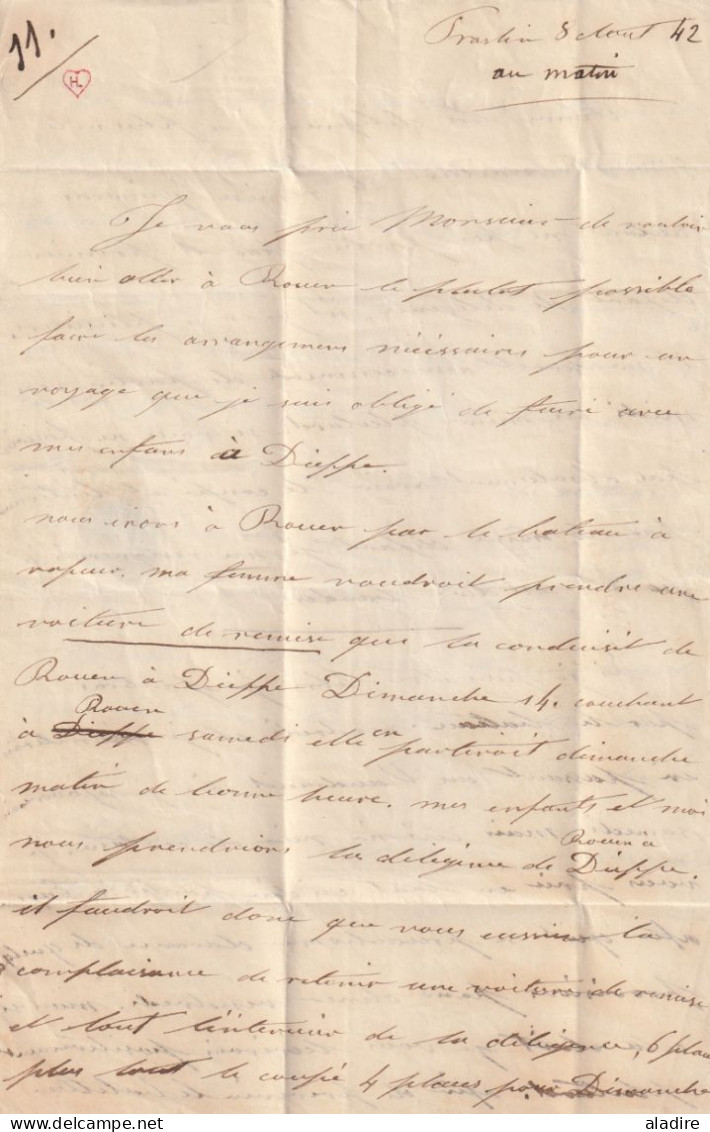 11.
Praslin 8 Aout 42
au matin
H.
Je vous prie Monsieur de vouloir
bien aller à Rouen le plutot possible
faire les arrangemens nécéssaires pour un
voyage que je suis obligé de faire avec
mes enfans à Dieppe.
nous irons à Rouen par le bateau à
vapeur. ma femme voudroit prendre une
voiture de remise qui la conduisit de
Rouen à Dieppe Dimanche 14. couchant
à Dieppe Rouen samedi elle en partiroit dimanche
matin de bonne heure. mes enfants et moi
nous prendrions la diligence de Rouen a Dieppe.
il faudroit donc que vous eussiez la
complaisance de retenir une voiture de remise
et tout l'intérieur de la diligence, 6 places
plus tout le coupé 4 places pour Dimanche
aladire